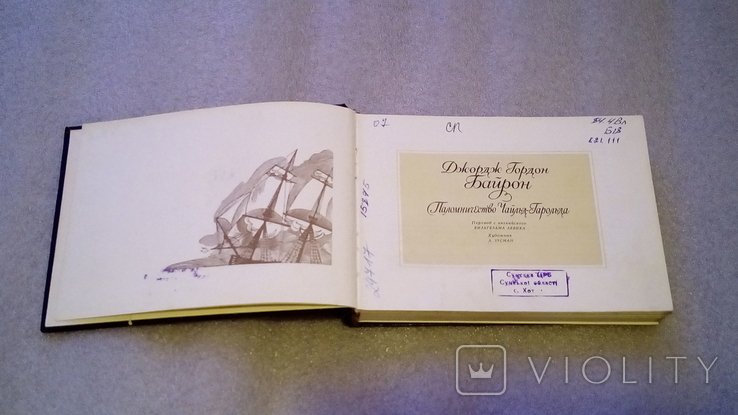 07
СП
84.4Вл
Б18
Джордж Гордон
Байрон
Паломничество Чайльд-Гарольда
Перевод с английского
ВИЛЬГЕЛЬМА ЛЕВИКА
Художник
Сумської області
с.
VIOLITY